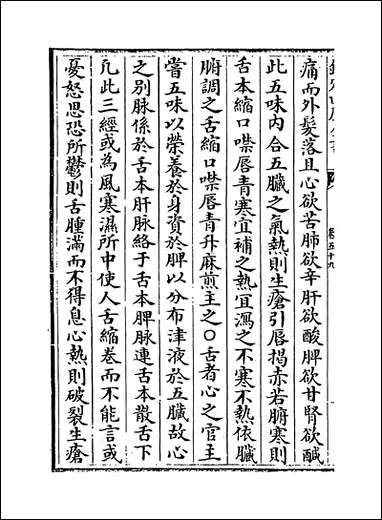 卷五十九
痛而外髮落且心欲苦肺欲辛肝欲酸脾欲甘腎欲鹹
此五味内合五臟之氣熱則生瘡引唇揭赤若腑寒則
舌本縮口噤唇青寒宜補之熱宜瀉之不寒不熱依臟
腑調之舌縮口噤唇青升麻煎主之〇舌者心之官主
嘗五味以榮養於身資於脾以分布津液於五臟故心
之别脉係於舌本肝脉絡于舌本脾脉連舌本散舌下
凡此三經或為風寒濕所中使人舌縮卷而不能言或
憂怒思恐所鬱則舌腫滿而不得息心熱則破裂生瘡